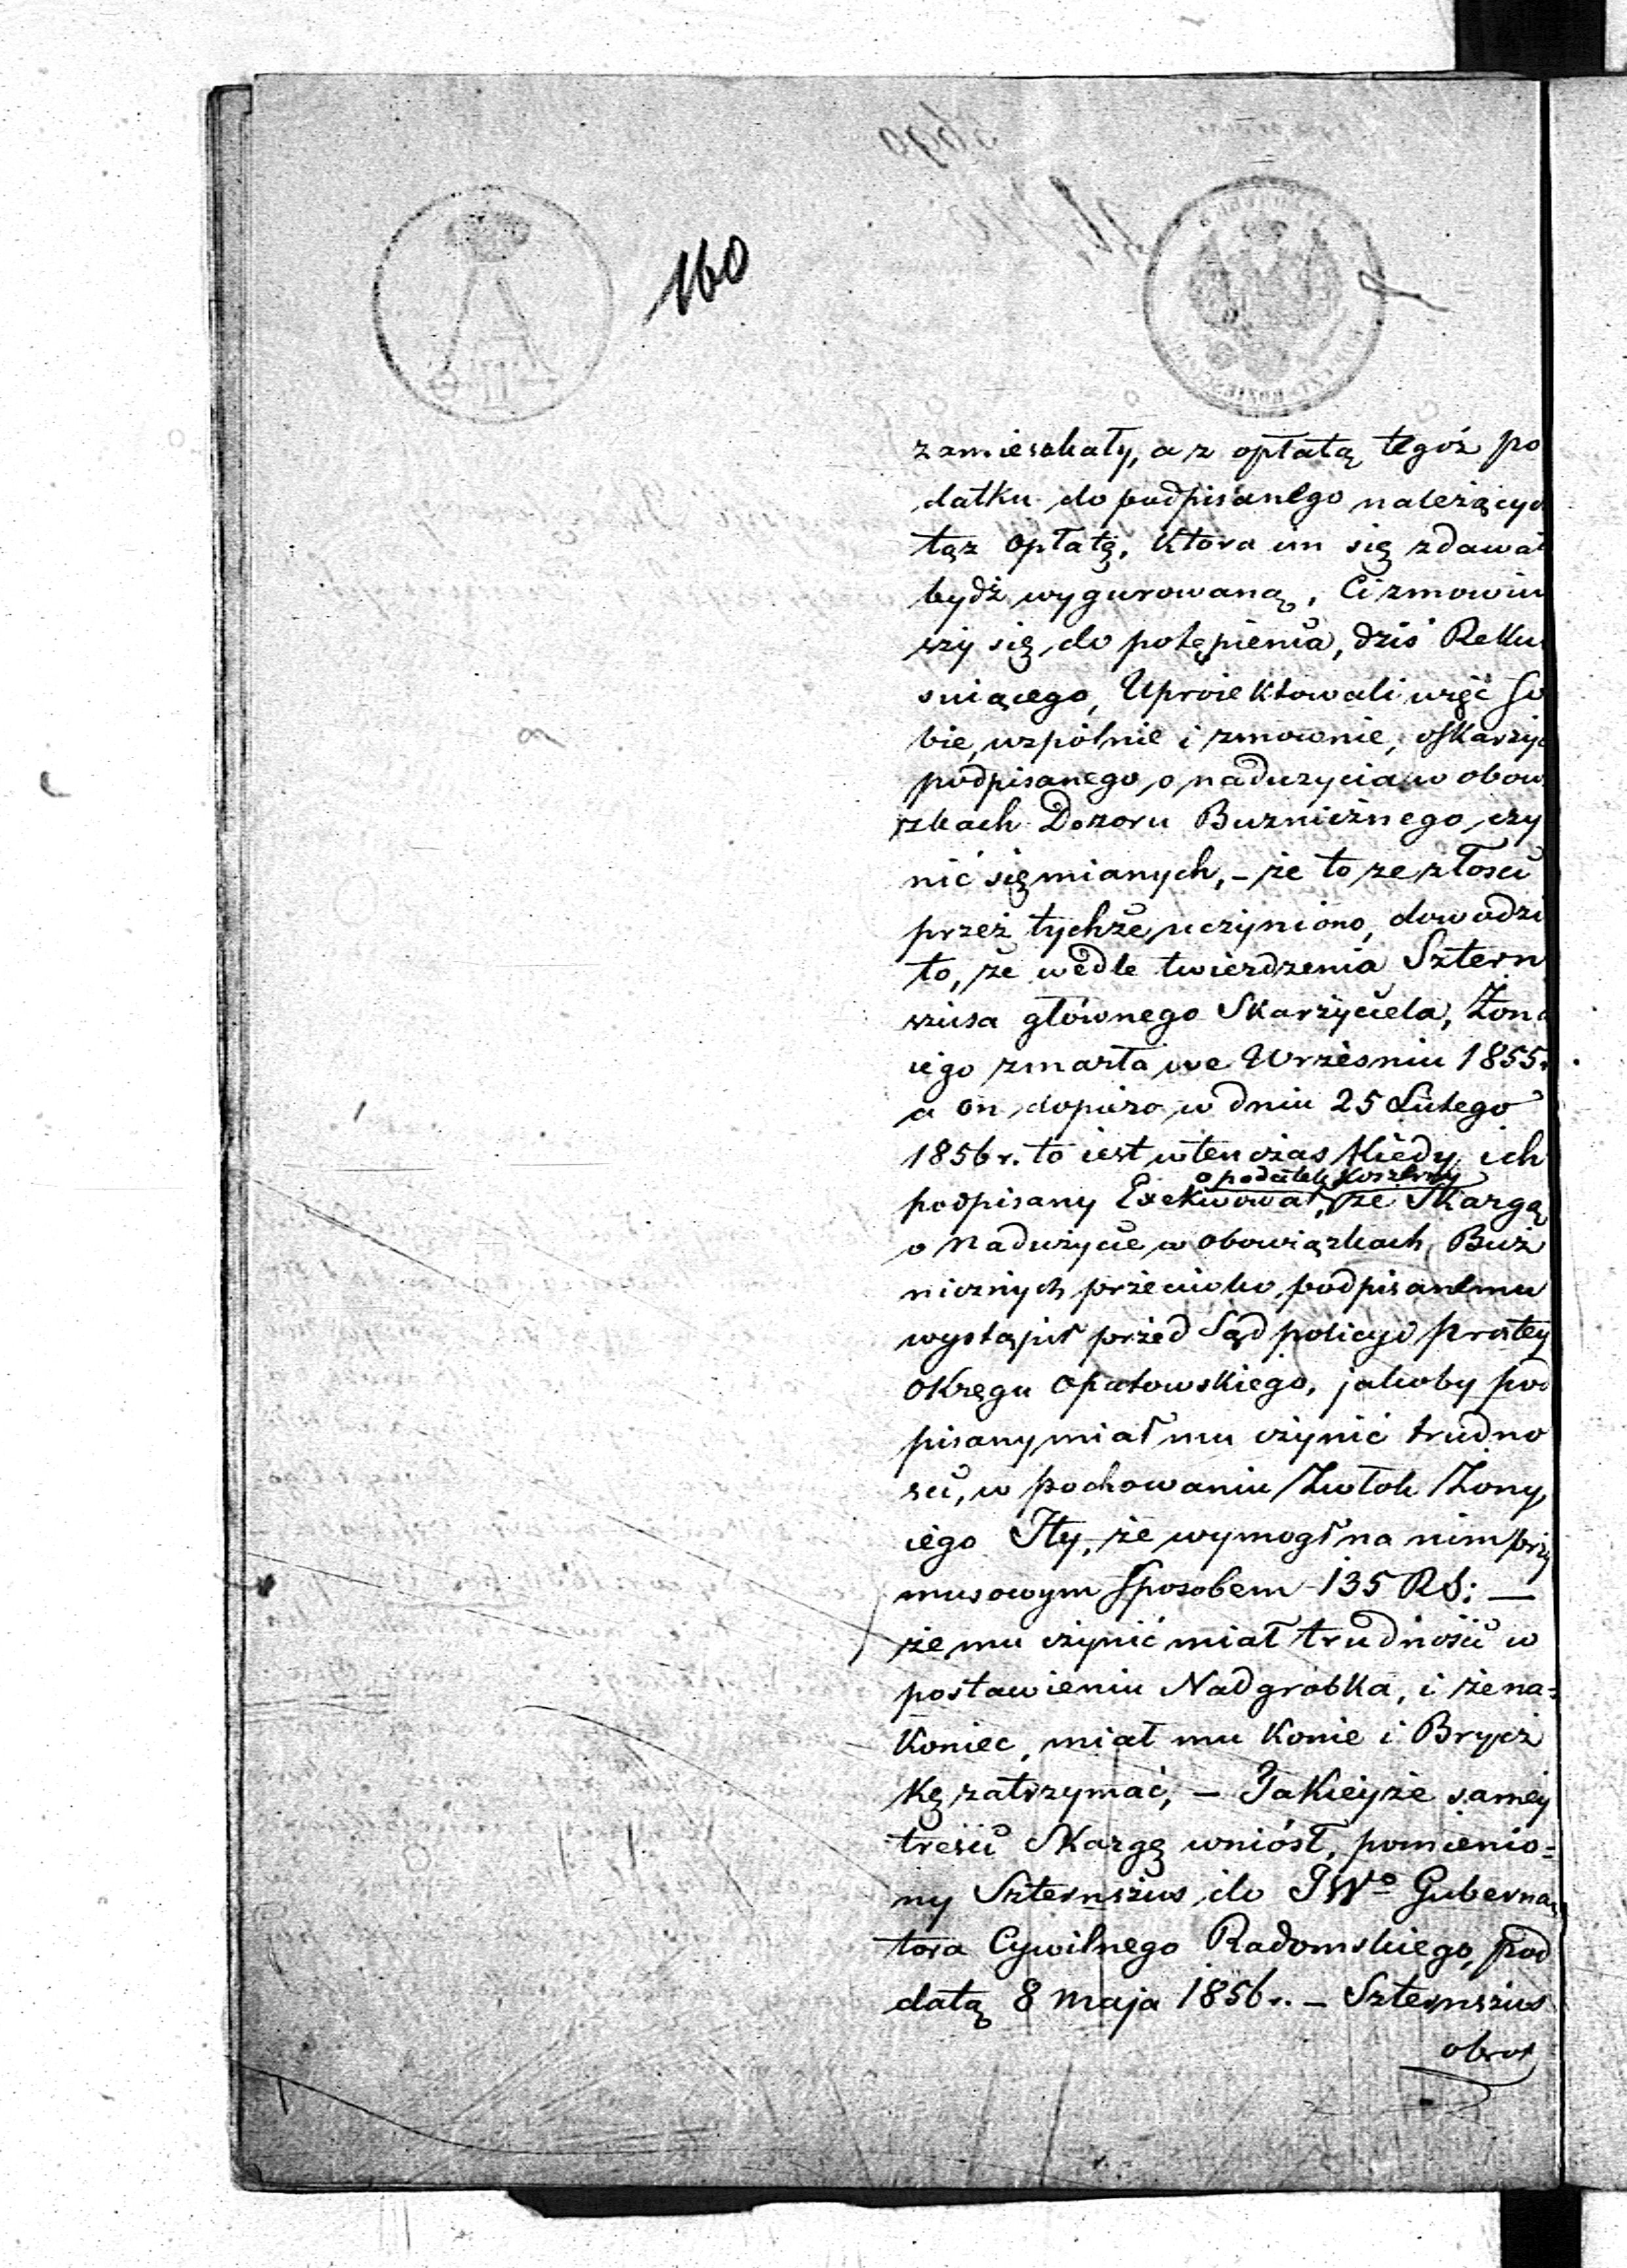 160
zamieszkały, a z opłatą tegóż po
datku do podpisanego należący
tąz opłatę, ktora im się zdawał
bydź wygurowaną, Ci zmowiw
szy się do potępienia, dziś Reku
sniącego, Uproiektowali więć so
bie, wzpólnie i zmownie, oskarzyć
podpisanego, o naduzycia w obow
zkach Dozoru Buznicznego czy
nić się mianych, – że to ze złoscú
przez tychże uczyniono, dowodzi
to, że wedle twierdzenia Sztern
szusa głównego Skarżyciela, Żona
iego zmarła we Wrzesniu 1855.
a on dopiero w dniu 25 Lutego
1856 r. to iest wtenczas kiedy ich
o podatek Koszerny
podpisany Exekwował, ze Skargą
o Nadużycie w obowiązkach Buż
nicznych przeciwko podpisanemu
wystąpił przed Sąd policyi prostey
Okręgu Opatowskiego, jakoby pod
pisany miał mu czynić trudno
sci, w pochowaniu Zwłok Żony
iego Ity, że wymogł na nim przy
musowym sposobem 135 RS: —
że mu czynić miał trudności w
postawieniu Nadgrobka, i że na=
koniec, miał mu Konie i Brycz
kę zatrzymać, – Jakieyże samey
treści Skargę wniósł, pomienio=
ny Szternszus do JWo Guberna
tora Cywilnego Radomskiego, pod
datą 8 maja 1856 r. – Szternszus
obrot